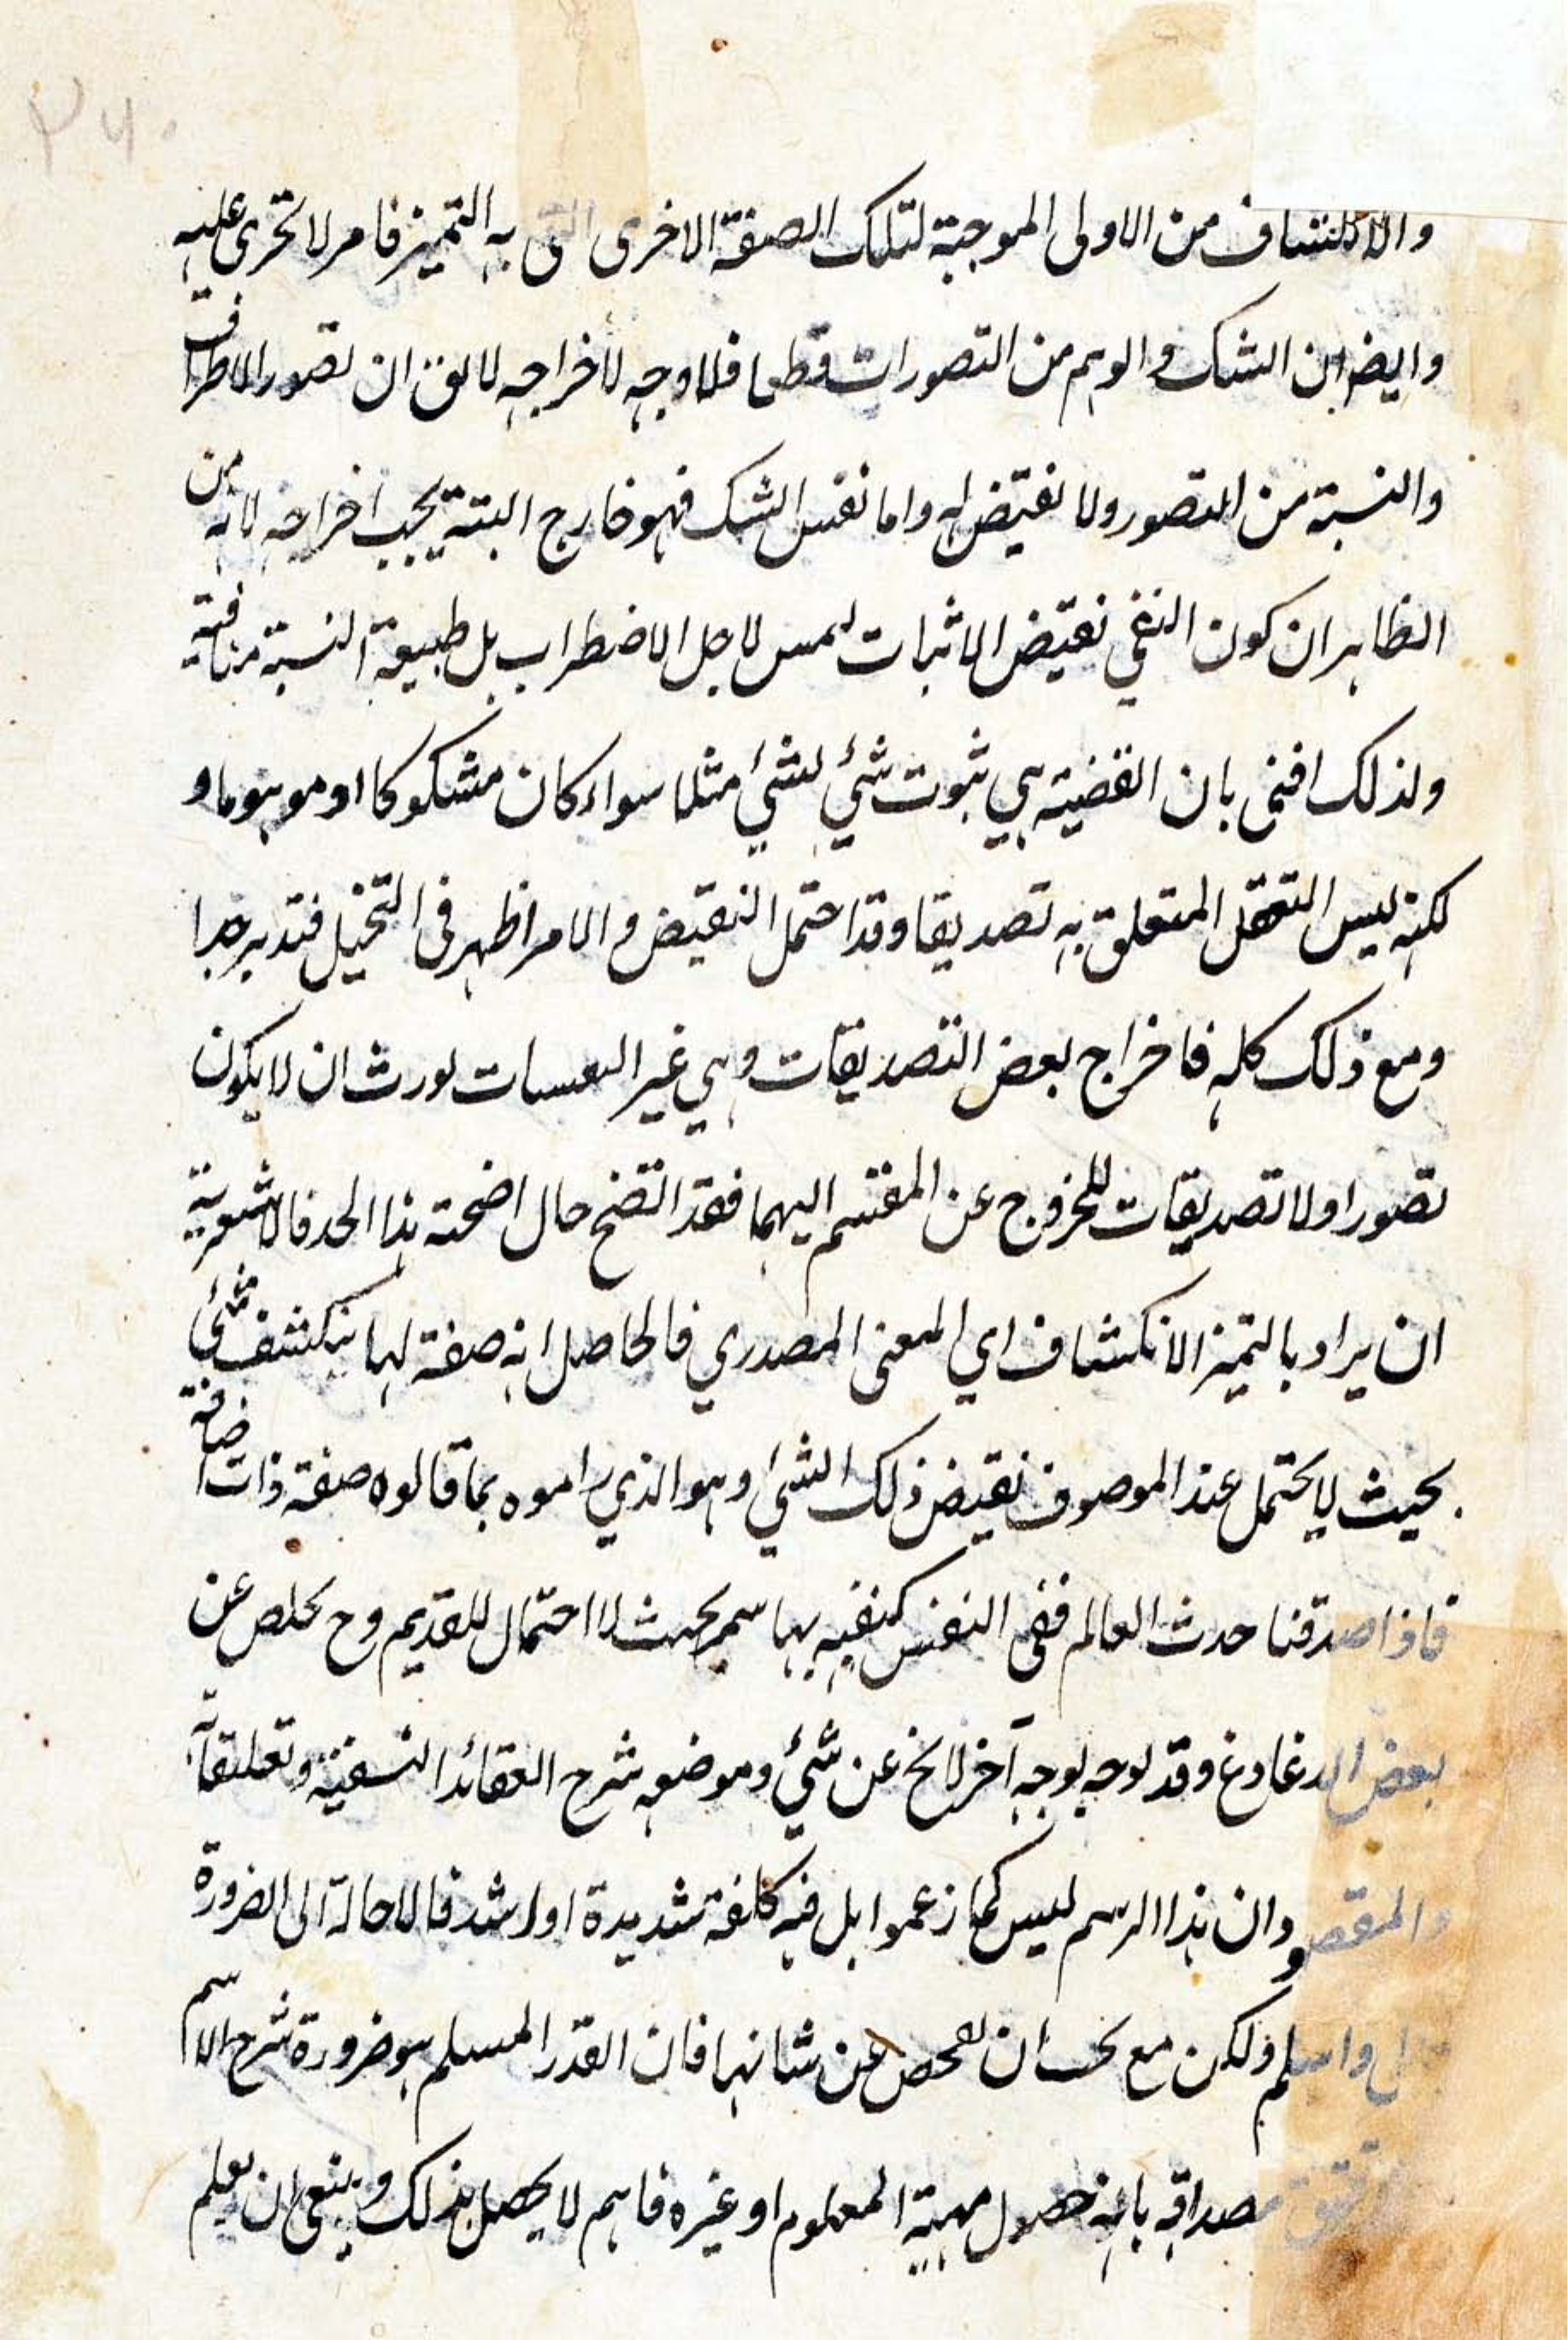 ٢٦٠
والانكشاف من الاولى الموجبة لتلك الصفة الاخرى التى به التميز فامر لا تحرى عليه
وايضا ان الشك والوهم من التصورات قطعا فلا وجه لاخراجه لا يق ان تصور الاطراف
والنسبة من التصور ولا نقيض له واما نفس الشك فهو خارج البتة يجب اخراجه لانه من
الظاهر ان كون النفي نقيض الاثبات ليس لاجل الاضطراب بل طبيعة النسبة منافية
ولذلك افتى بان القضية هي ثبوت شئ لشئ مثلا سواء كان مشكوكا او موهوما و
لكنه ليس التعقل المتعلق به تصديقا وقد احتمل النقيض والامر اظهر في التخيل فتدبر جدا
ومع ذلك كله فاخراج بعض التصديقات وهي غير اليقينيات يورث ان لا يكون
تصورا ولا تصديقات للخروج عن المقسم اليهما فقد اتضح حال اضحته هذا الحد فالاشعرية
ان يراد بالتميز الانكشاف اي المعنى المصدري فالحاصل انه صفة لها ينكشف شئ
بحيث لا يحتمل عند الموصوف نقيض ذلك الشئ وهو الذي راموه بما قالوه صفة ذات اضافة
فاذا صدقنا حدث العالم ففي النفس كيفيه بها بحيث لا احتمال للقديم وح يخلص عن
بعض الدغادغ وقد يوجه بوجه آخر لا يخ عن شئ وموضعه شرح العقائد النسفية وتعليقاته
والمقصود ان هذا الرسم ليس كما زعموا بل فيه كلفة شديدة او اشد فالاحالة الى الضرورة
واسلم ولكن مع يجب ان يفحص عن شانها فان القدر المسلم هو ضرورة شرح الاسم
مصداقه بانه حصول مهية المعلوم او غيره فانهم لا يحصل بذلك وينبغي ان يعلم